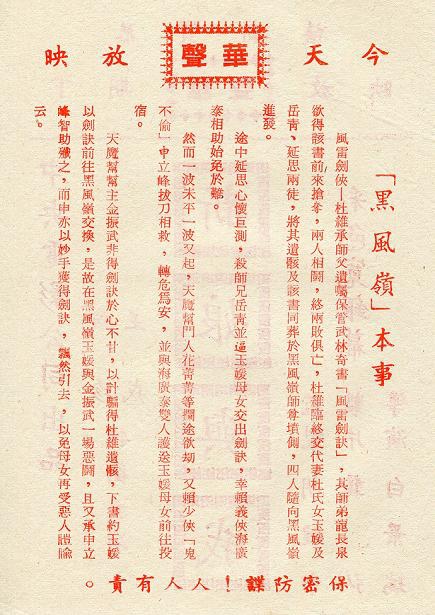 今天 華聲 放映
「黑風嶺」本事
風雷劍俠—杜維承師父遺囑保管武林奇書「風雷劍訣」，其師弟龍長泉
欲得該書前來搶爹，兩人相鬪，終兩敗俱亡，杜維臨終交代妻杜氏女玉媛及
岳靑、延思兩徒，將其遺骸及該書同葬於黑風嶺師尊墳側，四人隨向黑風嶺
進發。
途中延思心懷叵測，殺師兄岳靑並逼玉媛母女交出劍訣，幸賴義俠海廣
泰相助始免於難。
然而一波未平一波又起，天魔幫門人花菁菁等攔途欲刧，又賴少俠「鬼
不偷」申立峰拔刀相救，轉危爲安，並與海廣泰雙人護送玉媛母女前往投
宿。
天魔幫幫主金振武非得劍訣於心不甘，以計騙得杜維遺骸，下書約玉媛
以劍訣前往黑風嶺交換，是故在黑風嶺玉媛與金振武一場惡鬪，且又承申立
峰智助殲之，而申亦以妙手獲得劍訣，飄然引去，以免母女再受惡人覬覦
云。
保密防諜！人人有責。